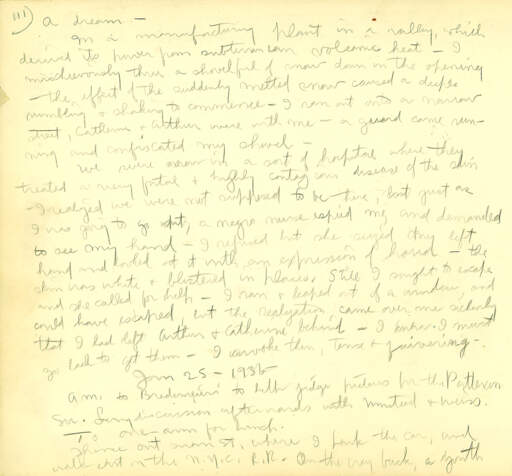 111)
A dream —
In a manufacturing plant in a valley, which
derived its power from subterranean volcanic heat — I
mischievously threw a shovelful of snow down in the opening
— the effect of the suddenly melted snow caused a deep
rumbling & shaking to commence — I ran out into a narrow
street, Catherine & Arthur were with me — a guard came run-
ning and confiscated my shovel —
We were now in a sort of hospital where they
treated a very fatal & highly contagious disease of the skin
— I realized we were not supposed to be here, but just as
I was going to go out, a negro nurse espied me, and demanded
to see my hand — I refused but she seized my left
hand and looked at it with an expression of horror — the
skin was white & blistered in places. Still I sought to escape
and she called for help — I ran & leaped out of a window, and
could have escaped, but the realization came over me suddenly
that I had left Arthur & Catherine behind — I knew I must
go back to get them — I awoke then, tense & quivering —
Jan 25 — 1936
A.M. to to help judge pictures for the Patteran
Soc. Long discussion afterwards with and
To one-arm for lunch.
Drove out Main St, where I park the car, and
walk east in the N.Y.C. R.R. On the way back, a youth